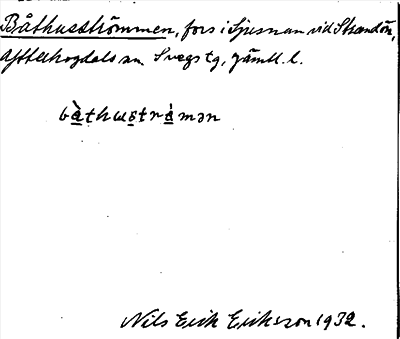 Båthusströmmen, fors i Ljusnan vid Strandön,
Ytterhogdals sn Svegs tg, Jämtl. l.
bàthustrǻmən
Nils Erik Eriksson 1932.